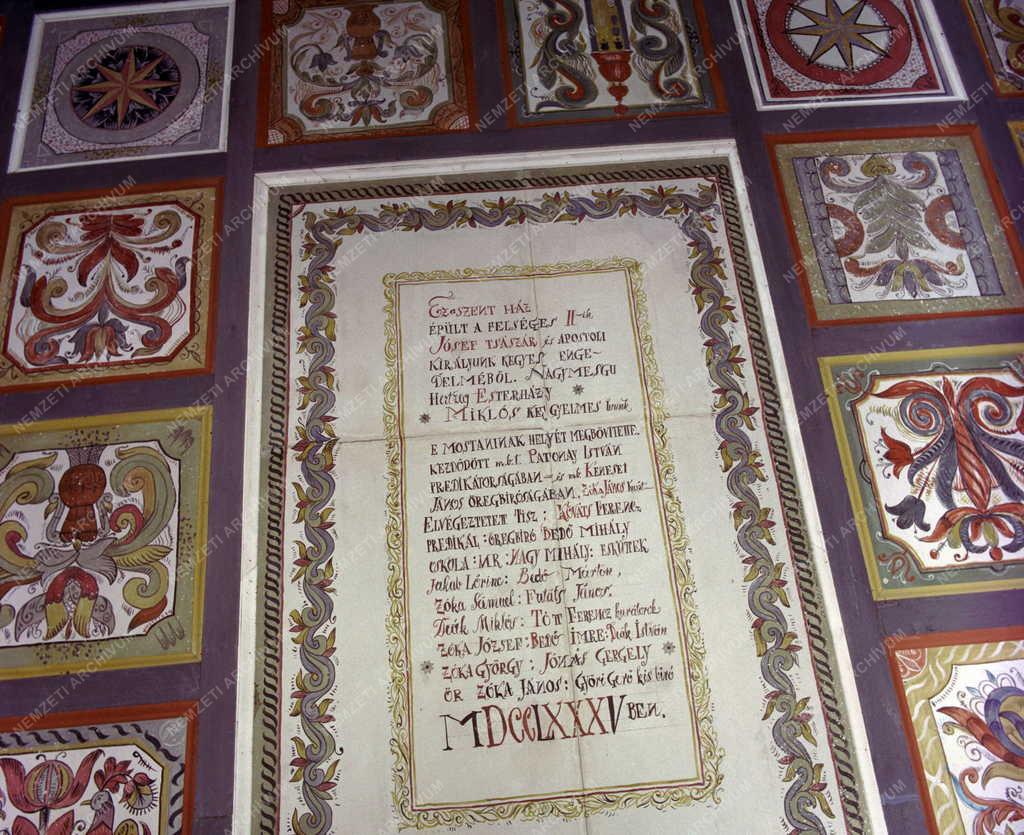 Ez a SZENT HÁZ
ÉPÜLT A FELSÉGES II-ik
JÓSEF TSÁSZÁR és APOSTOLI
KIRÁLYUNK KEGYES ENGE-
DELMÉBÖL. NAGYMÉSGU
Hertzeg ESTERHÁZY
MIKLÓS KEGYELMES
E MOSTANINAK HELYÉT MEGBÖVITETTE.
KEZDÖDÖTT PATONAY ISTVÁN
PREDIKÁTORSÁGÁBAN és KENESEI
JÁNOS ÖREGBIRÓSÁGÁBAN, ZÓKA JÁNOS
ELVÉGEZTETET TISZ: KOVÁTS FERENCZ
PREDIKÁL: ÖREGBIRÓ BEDÖ MIHÁLY
OSKOLA: MR. NAGY MIHÁLY: ESKÜTEK
Jakab Lörinc: Bedö Márton,
Zóka Sámuel: János,
Deák Miklós: TÓTT FERENCZ kurátorok
ZÓKA JÓZSEF: BEDÖ IMRE: Deák István
ZÓKA GYÖRGY: JÓNÁS GERGELY
ÖR ZÓKA JÁNOS: Györi Gerö kis biró
MDCCLXXXV BEN.
NEMZETI ARCHÍVUM